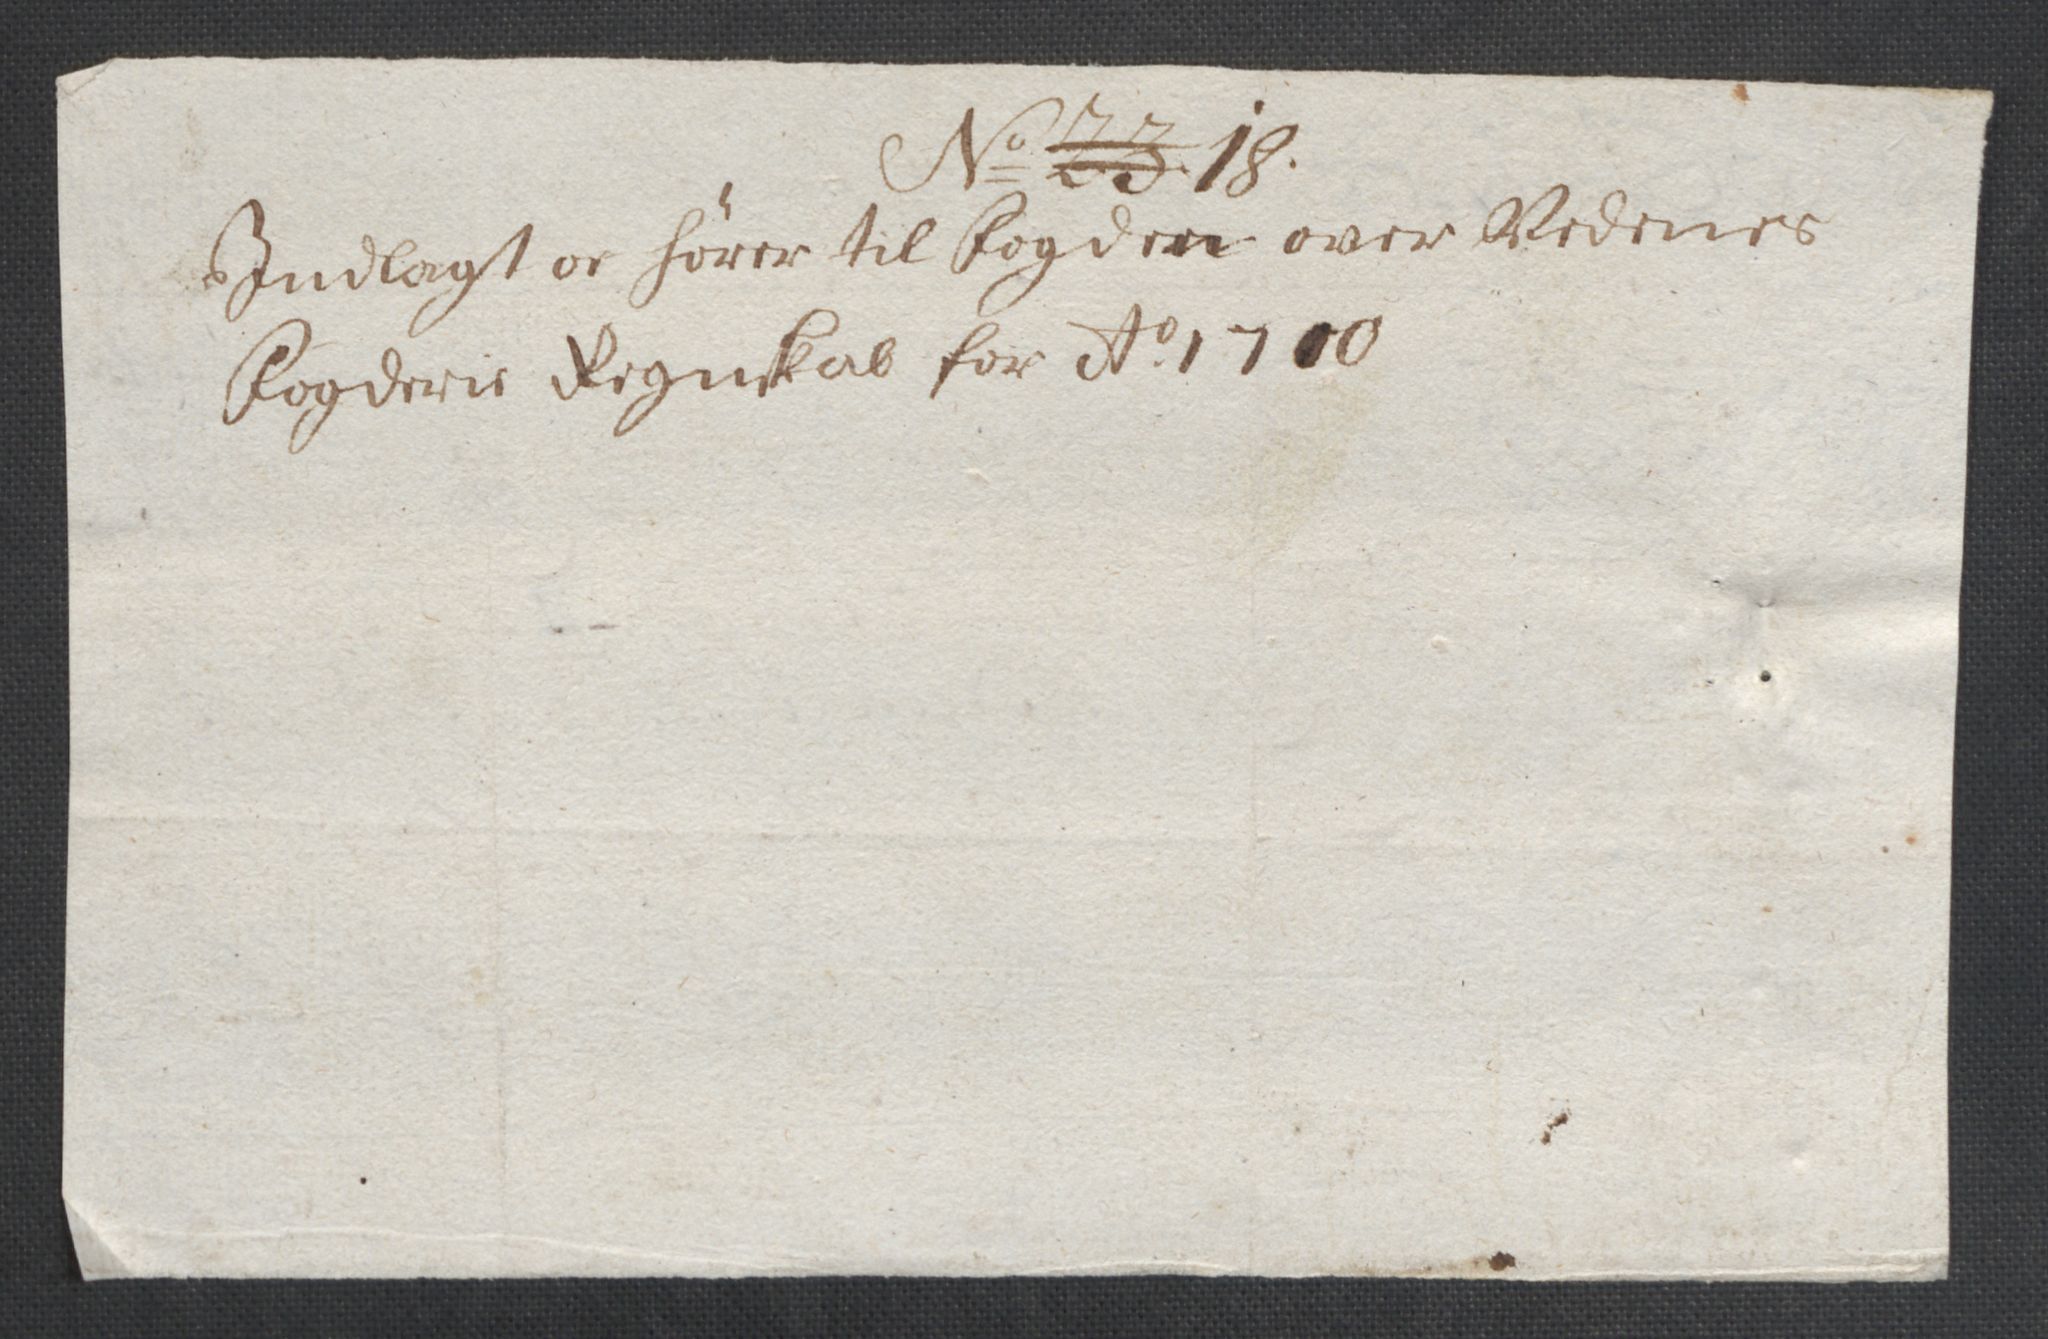 No 23 18.
Indlagt oc hörer til Fogden over Nedenes
Fogderie Regnskab for Ao 1710